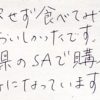 せず食べてみ
おいしかったです。
県のSAで購
になっています